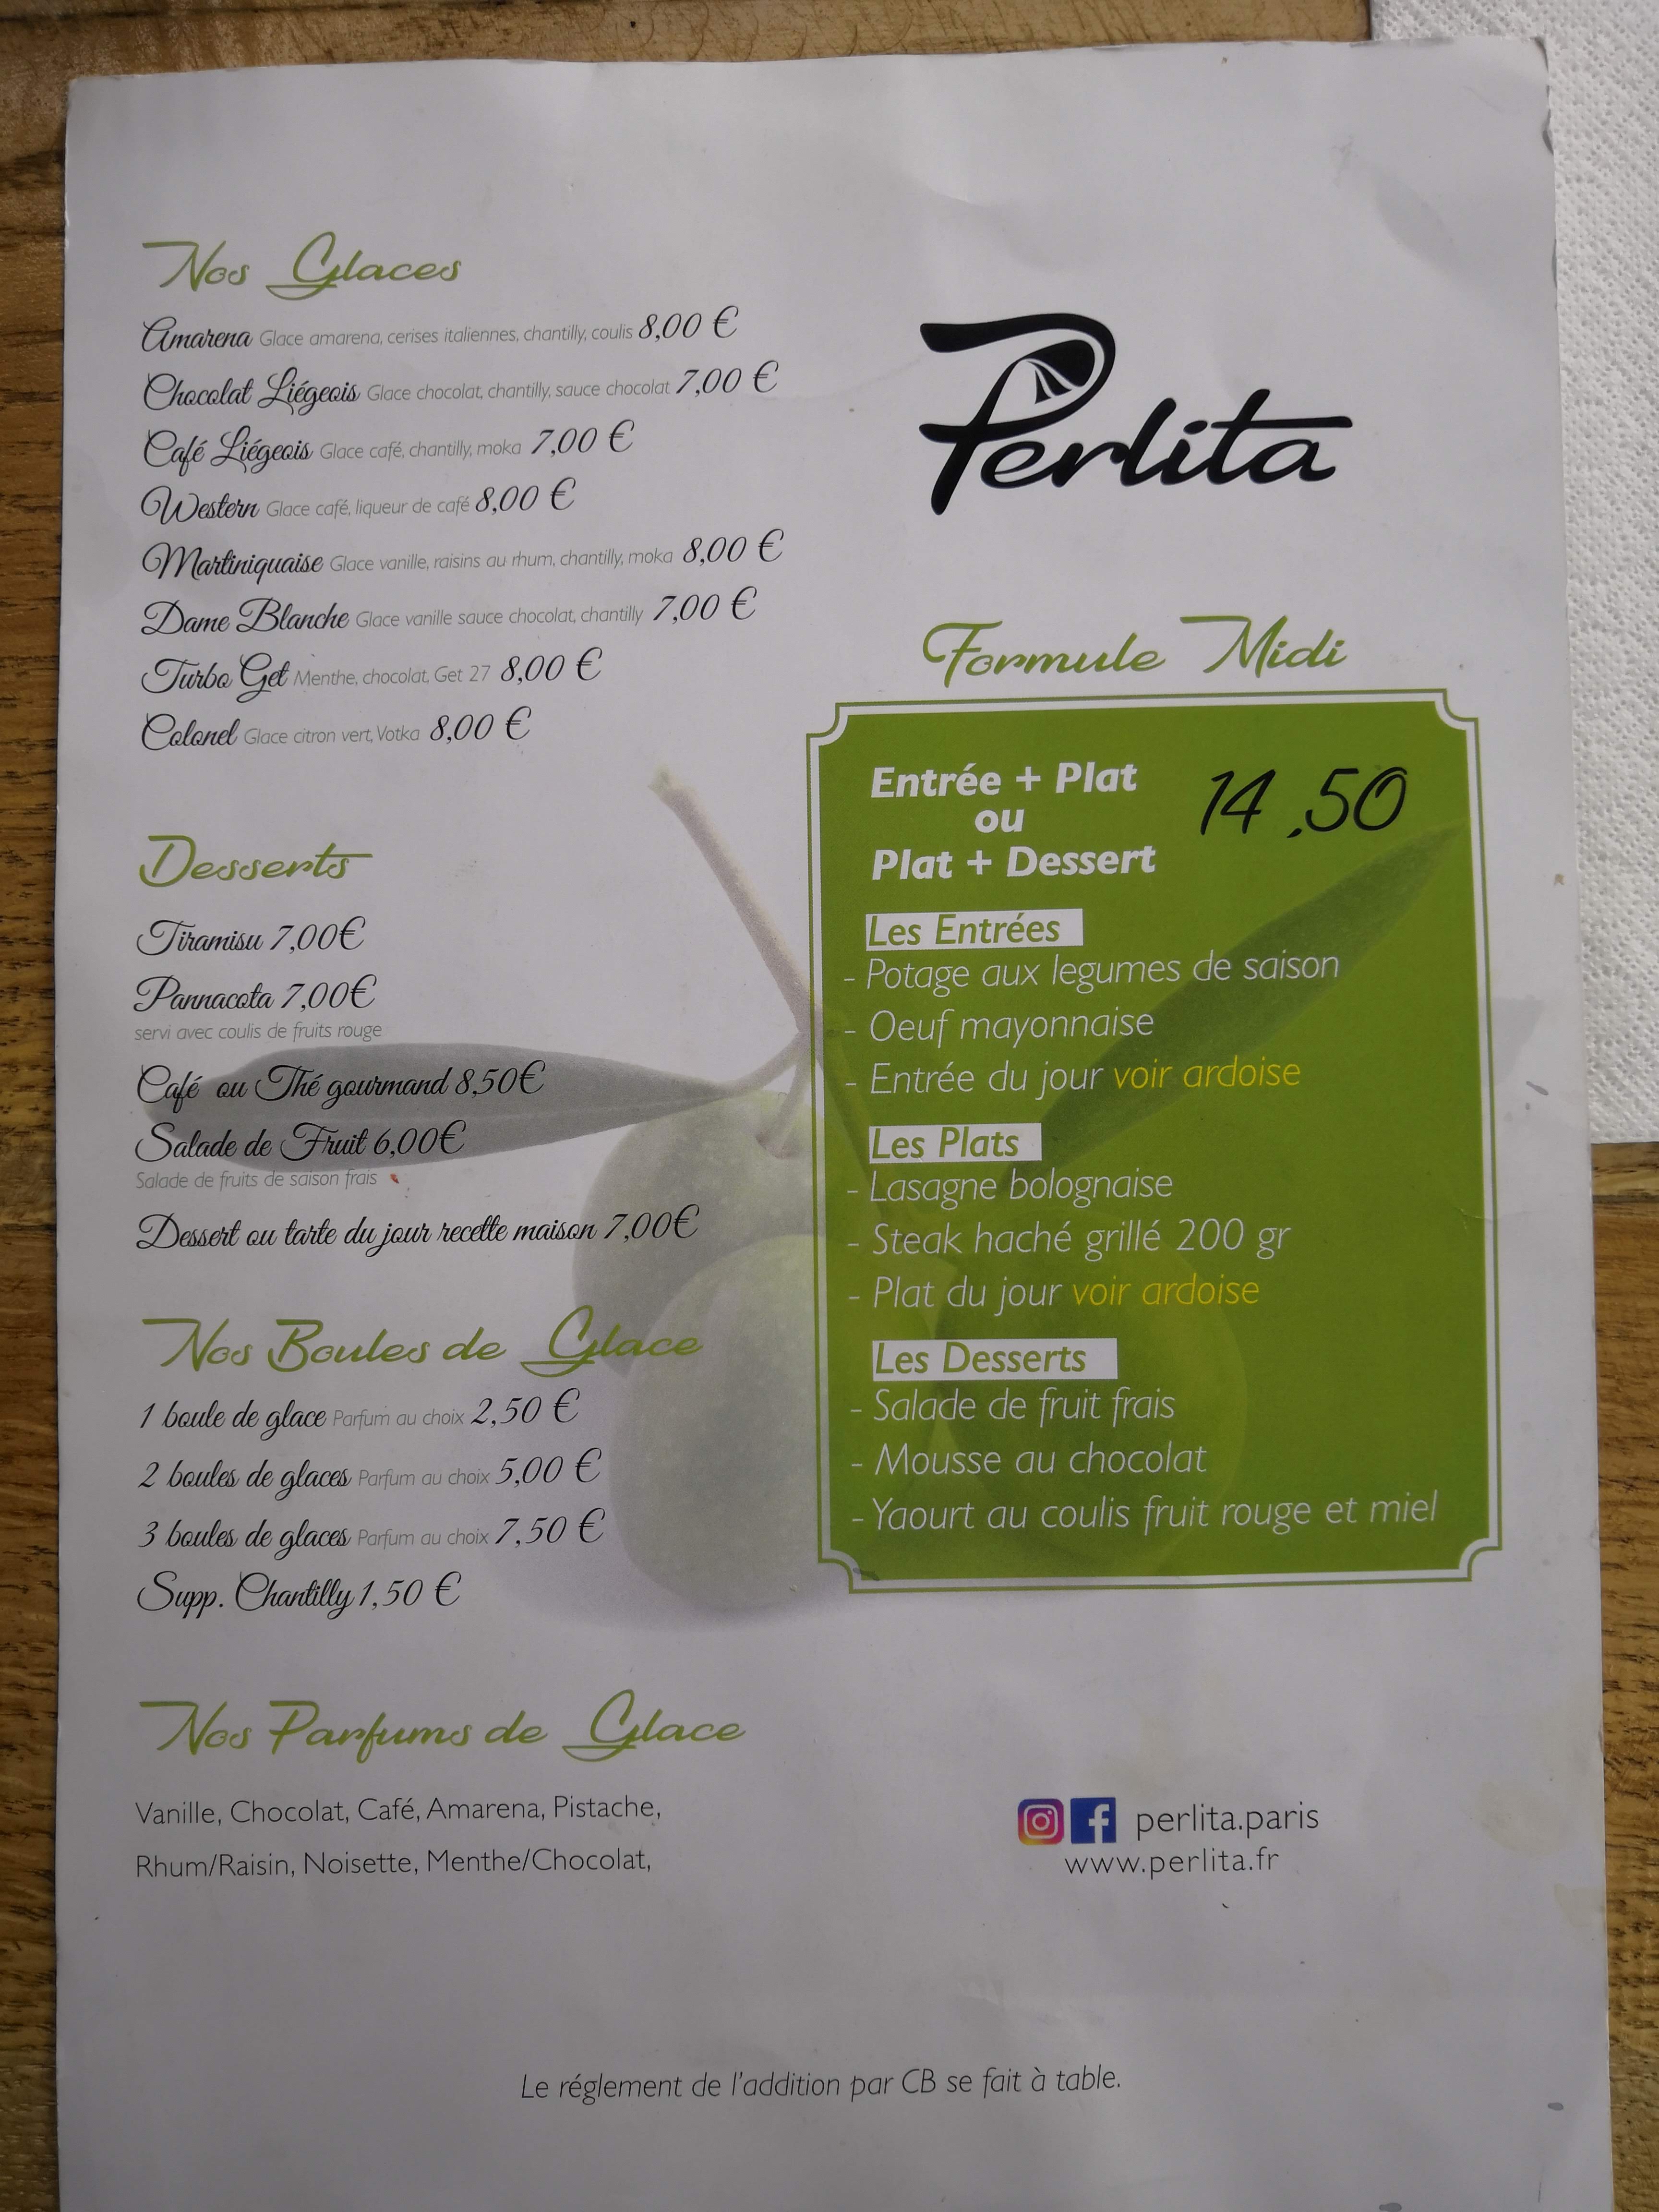 Nos Glaces
Amarena Glace amarena, cerises italiennes, chantilly, coulis 8,00 €
Chocolat Liégeois Glace chocolat, chantilly, sauce chocolat 7,00 €
Café Liégeois Glace café, chantilly, moka 7,00 €
Western Glace café, liqueur de café 8,00 €
Martiniquaise Glace vanille, raisins au rhum, chantilly, moka 8,00 €
Dame Blanche Glace vanille sauce chocolat, chantilly 7,00 €
Turbo Get Menthe, chocolat, Get 27 8,00 €
Colonel Glace citron vert, Votka 8,00 €
Desserts
Tiramisu 7,00€
Pannacota 7,00€
servi avec coulis de fruits rouge
Café ou Thé gourmand 8,50€
Salade de Fruit 6,00€
Salade de fruits de saison frais
Dessert ou tarte du jour recette maison 7,00€
Nos Boules de Glace
1 boule de glace Parfum au choix 2,50 €
2 boules de glaces Parfum au choix 5,00 €
3 boules de glaces Parfum au choix 7,50 €
Supp. Chantilly 1,50 €
Nos Parfums de Glace
Vanille, Chocolat, Café, Amarena, Pistache,
Rhum/Raisin, Noisette, Menthe/Chocolat,
Perlita
Formule Midi
Entrée + Plat
ou
Plat + Dessert
14,50
Les Entrées
- Potage aux legumes de saison
- Oeuf mayonnaise
- Entrée du jour voir ardoise
Les Plats
- Lasagne bolognaise
- Steak haché grillé 200 gr
- Plat du jour voir ardoise
Les Desserts
- Salade de fruit frais
- Mousse au chocolat
- Yaourt au coulis fruit rouge et miel
perlita.paris
www.perlita.fr
Le réglement de l'addition par CB se fait à table.